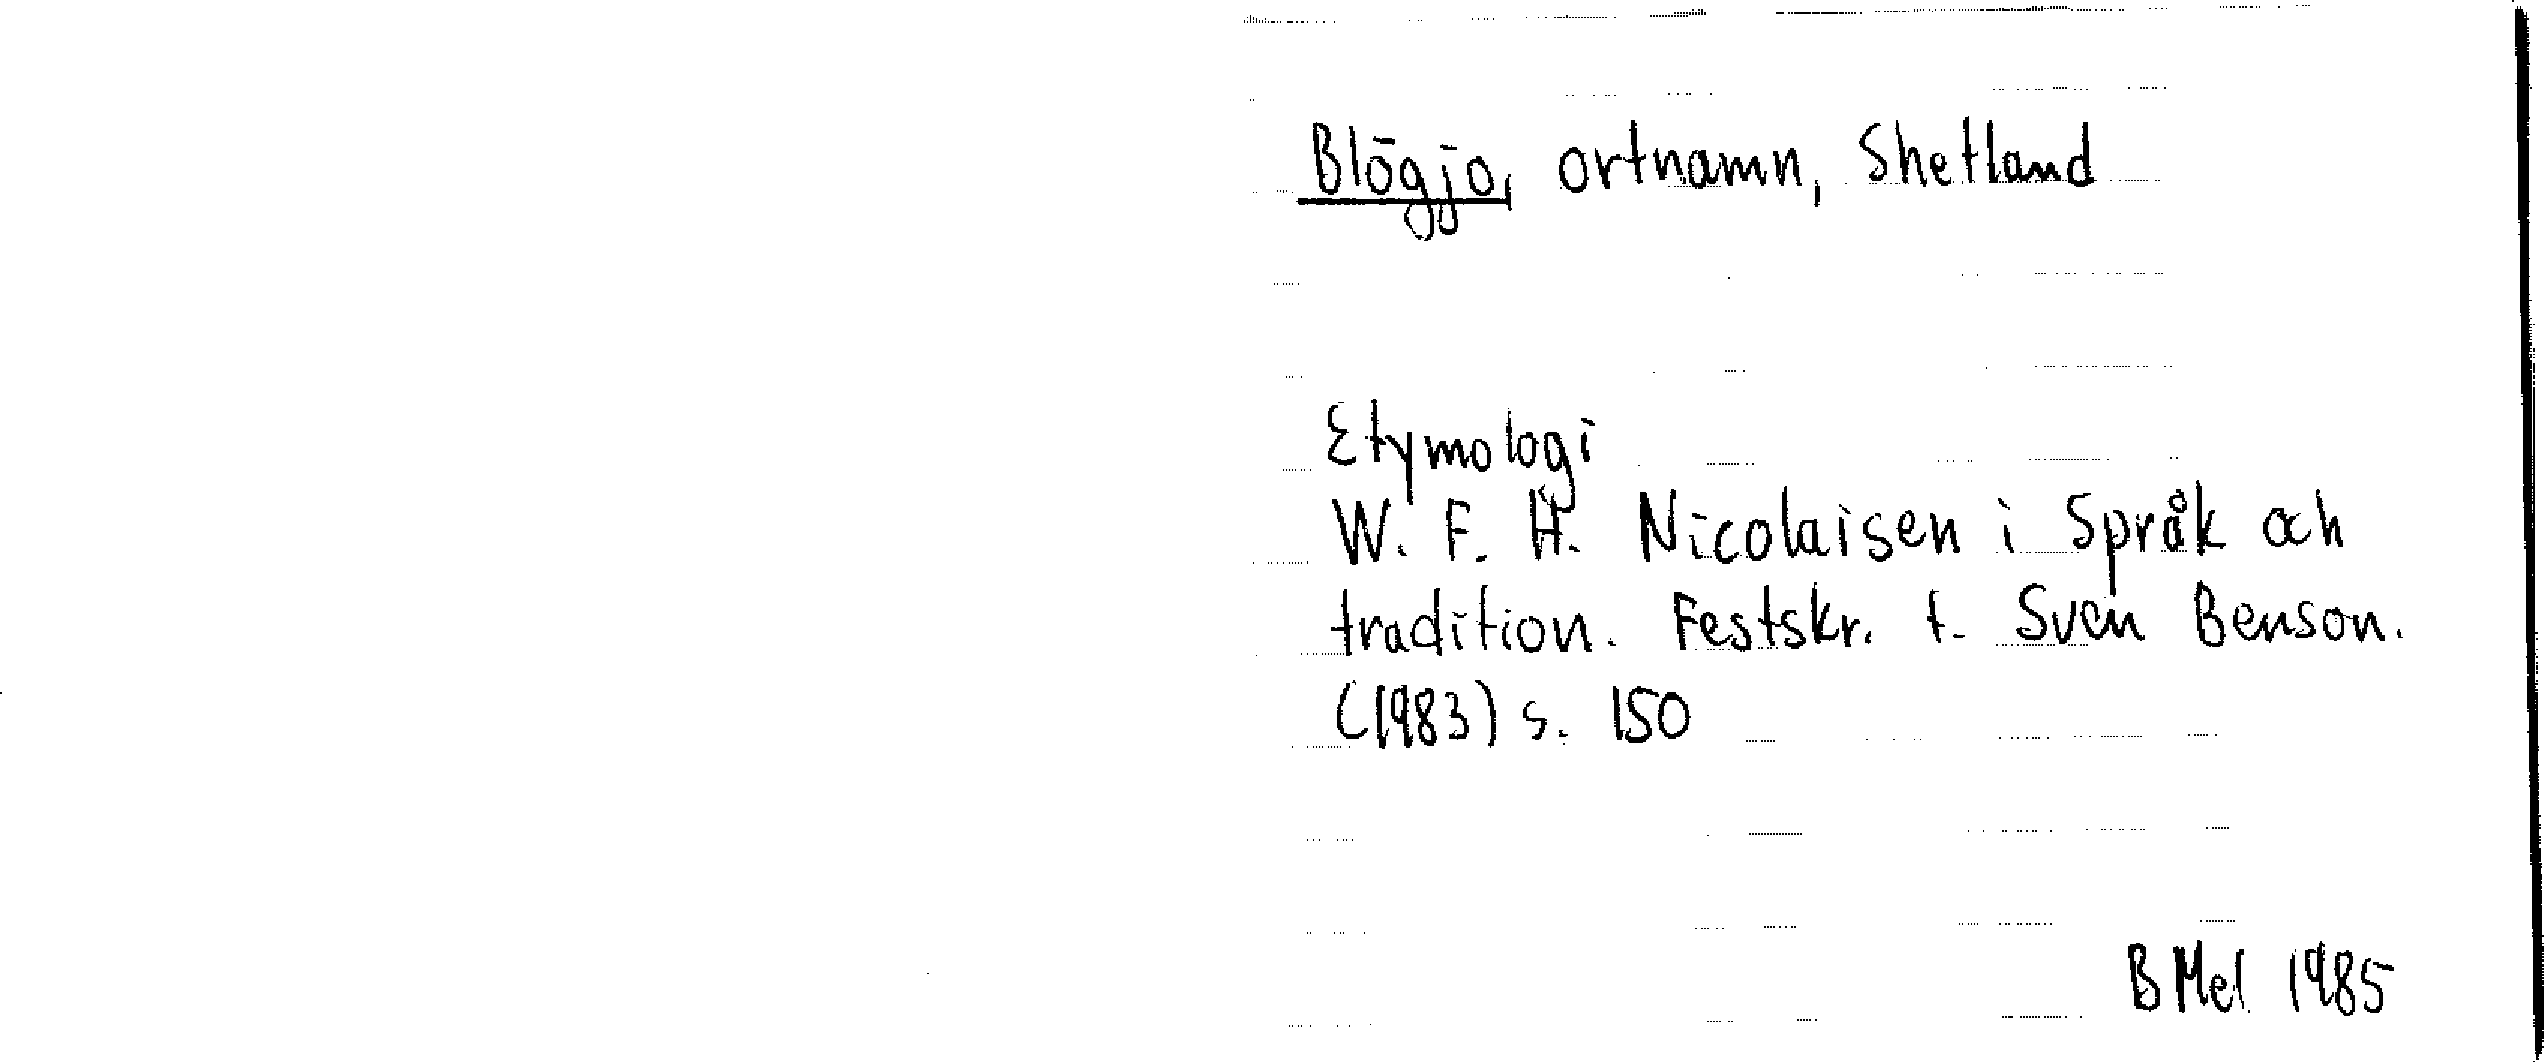 Blōgjo, ortnamn, Shetland
Etymologi
W. F. H. Nicolaisen i Språk och
tradition. Festskr. t. Sven Benson.
(1983) s. 150
B Mel 1985